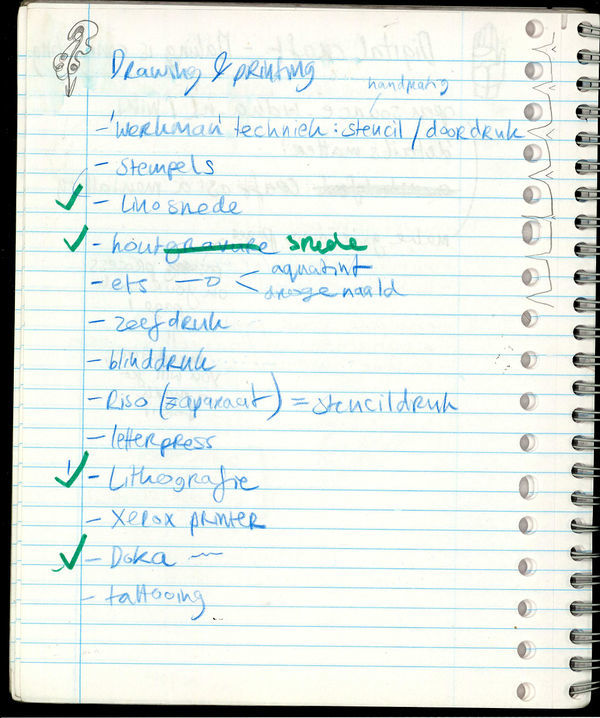 Drawing & printing
handmatig
- 'werkman' techniek: stencil / doordruk
- stempels
- Linosnede
- houtgravure snede
- ets aquatint
droge naald
- zeefdruk
- blinddruk
- Riso ( apparaat) = stencildruk
- letterpress
- Lithografie
- Xerox printer
- Doka
- tattooing